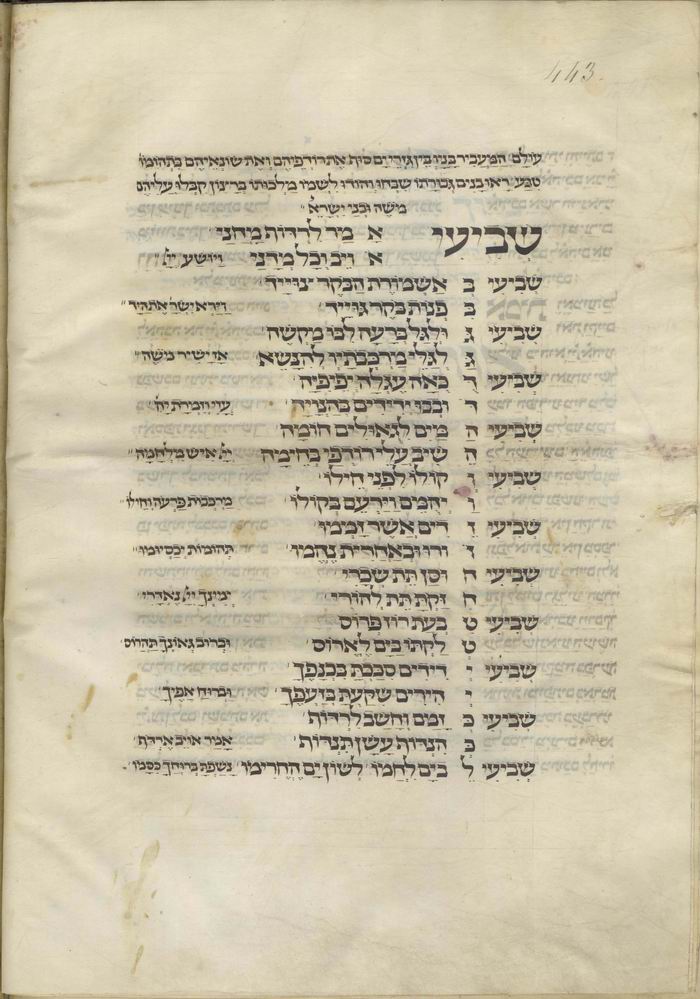 443
עולם המעביר בניו בין גזרי ים סוף את רודפיהם ואת שונאיהם בתהומו
טבע וראו בנים גבורתו שבחו והודו לשמו מלכותו ברצון קבלו עליהם
משה ובני ישרא
שביעי א מר לרדות מחני
א ויב ובל מדני ויושע ייי
שביעי ב אשמורת הבקר
ב פנות בקר וירא ישר את היד
שביעי ג ולגל ברעה לבו מקשה
ג לגלי מרכבתיו להנשא אז ישיר משה
שביעי ד באה עגלה יפיפיה
ד עזי וזמרת יה
שביעי ה מים לגאולים חומיה
ה שיב עלי רודפי בחימיה ייי איש מלחמה
שביעי ו קולו לפני חילו
ו וירעם בקולו מרכבות פרעה וחילו
שביעי ז דים אשר זממו
ז ורו ובאחרית נהמו תהומות יכסיומו
שביעי ח וסן תת שברי
ח זקת תת להורי ימינך ייי נאדרי
שביעי ט בעת רוז פרוס
ט לקתו בים לארוס וברוב גאונך תהרוס
שביעי י דידים סבבת בכנפך
י הירים שקעת בזעפך וברוח אפיך
שביעי כ זמם וחשב לרדות
כ עשן תנדות אמר אויב ארדף
שביעי ל בים לחמו לשון ים החרימו נשפת ברוחך כסמו